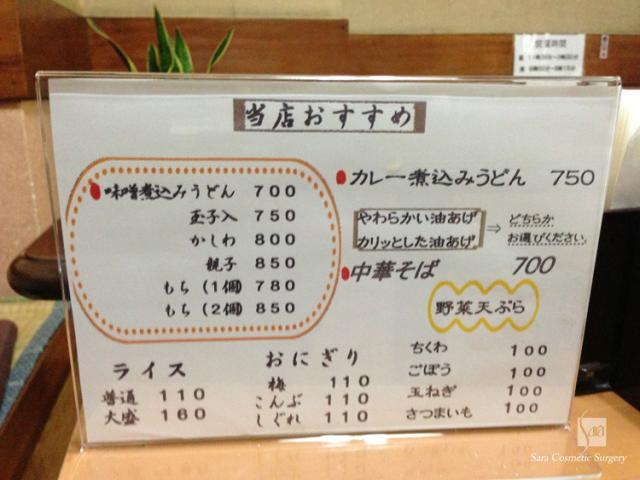 営業時間
当店おすすめ
味噌煮込みうどん 700
玉子入 750
かしわ 800
親子 850
もち(1個) 780
もち(2個) 850
カレー煮込みうどん 750
やわらかい油あげ
カリッとした油あげ
⇒ どちらか
お選びください。
中華そば 700
野菜天ぷら
ちくわ 100
ごぼう 100
玉ねぎ 100
さつまいも 100
ライス
普通 110
大盛 160
おにぎり
梅 110
こんぶ 110
しぐれ 110
Sara
Sara Cosmetic Surgery